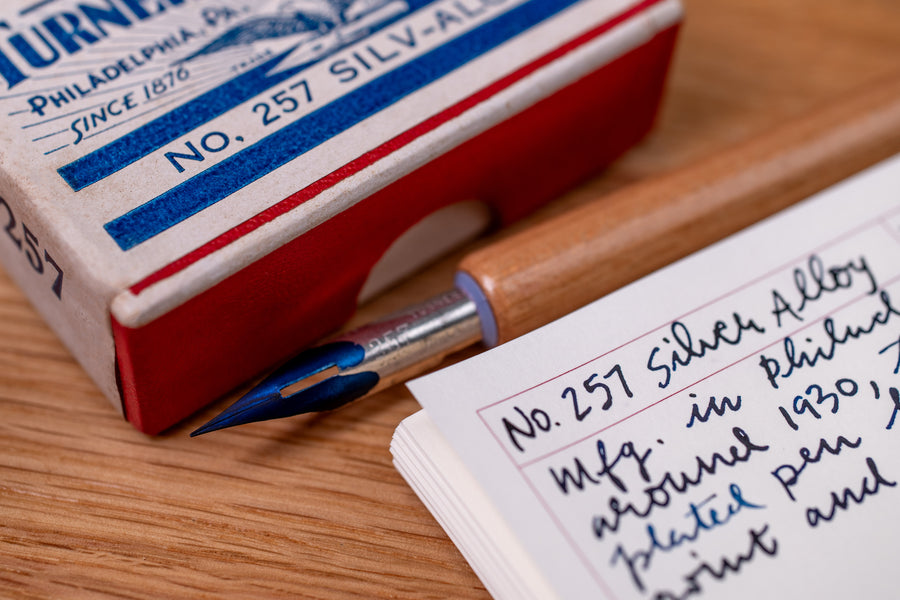 TURNE
PHILADELPHIA, PA.
SINCE 1876
TRADE
NO. 257 SILV-ALO
257
257
No. 257 Silver Alloy
Mfg. in
around 1930,
plated pen
point and